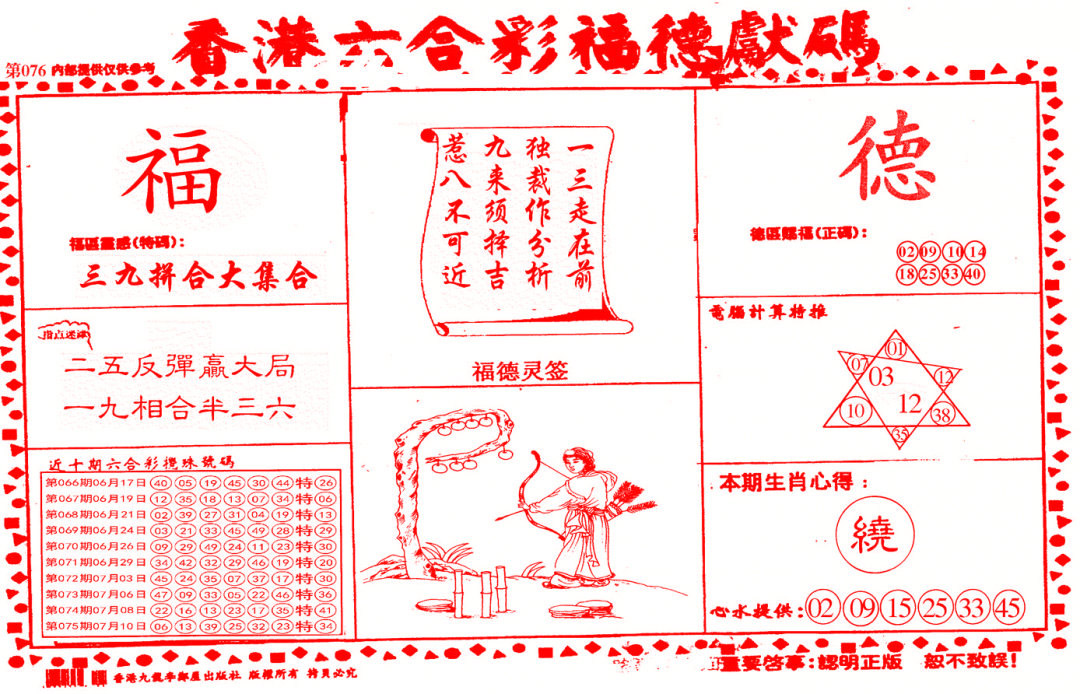 香港六合彩福德獻碼
第076 内部提供仅供参考
福
福區靈感(特碼):
三九拼合大集合
指点迷津
二五反彈贏大局
一九相合半三六
近十期六合彩攪珠號碼
第066期06月17日 40 05 19 45 30 44 特 26
第067期06月19日 12 35 18 13 07 34 特 06
第068期06月21日 02 39 27 31 04 19 特 13
第069期06月24日 03 21 33 45 49 28 特 29
第070期06月26日 09 29 49 24 11 23 特 30
第071期06月29日 34 42 32 29 46 19 特 20
第072期07月03日 45 24 35 07 37 17 特 30
第073期07月06日 47 09 33 05 22 46 特 36
第074期07月08日 22 16 13 23 17 35 特 41
第075期07月10日 06 13 39 25 32 23 特 34
一三走在前
独裁作分析
九来须择吉
惹八不可近
福德灵签
德
德區賜福(正碼):
02 09 10 14
18 25 33 40
電腦計算特推
01
07 03 12
10 12 38
35
本期生肖心得:
繞
心水提供: 02 09 15 25 33 45
香港九龍李鄭屋出版社 版權所有 拷貝必究
重要啓事:認明正版 恕不致誤!